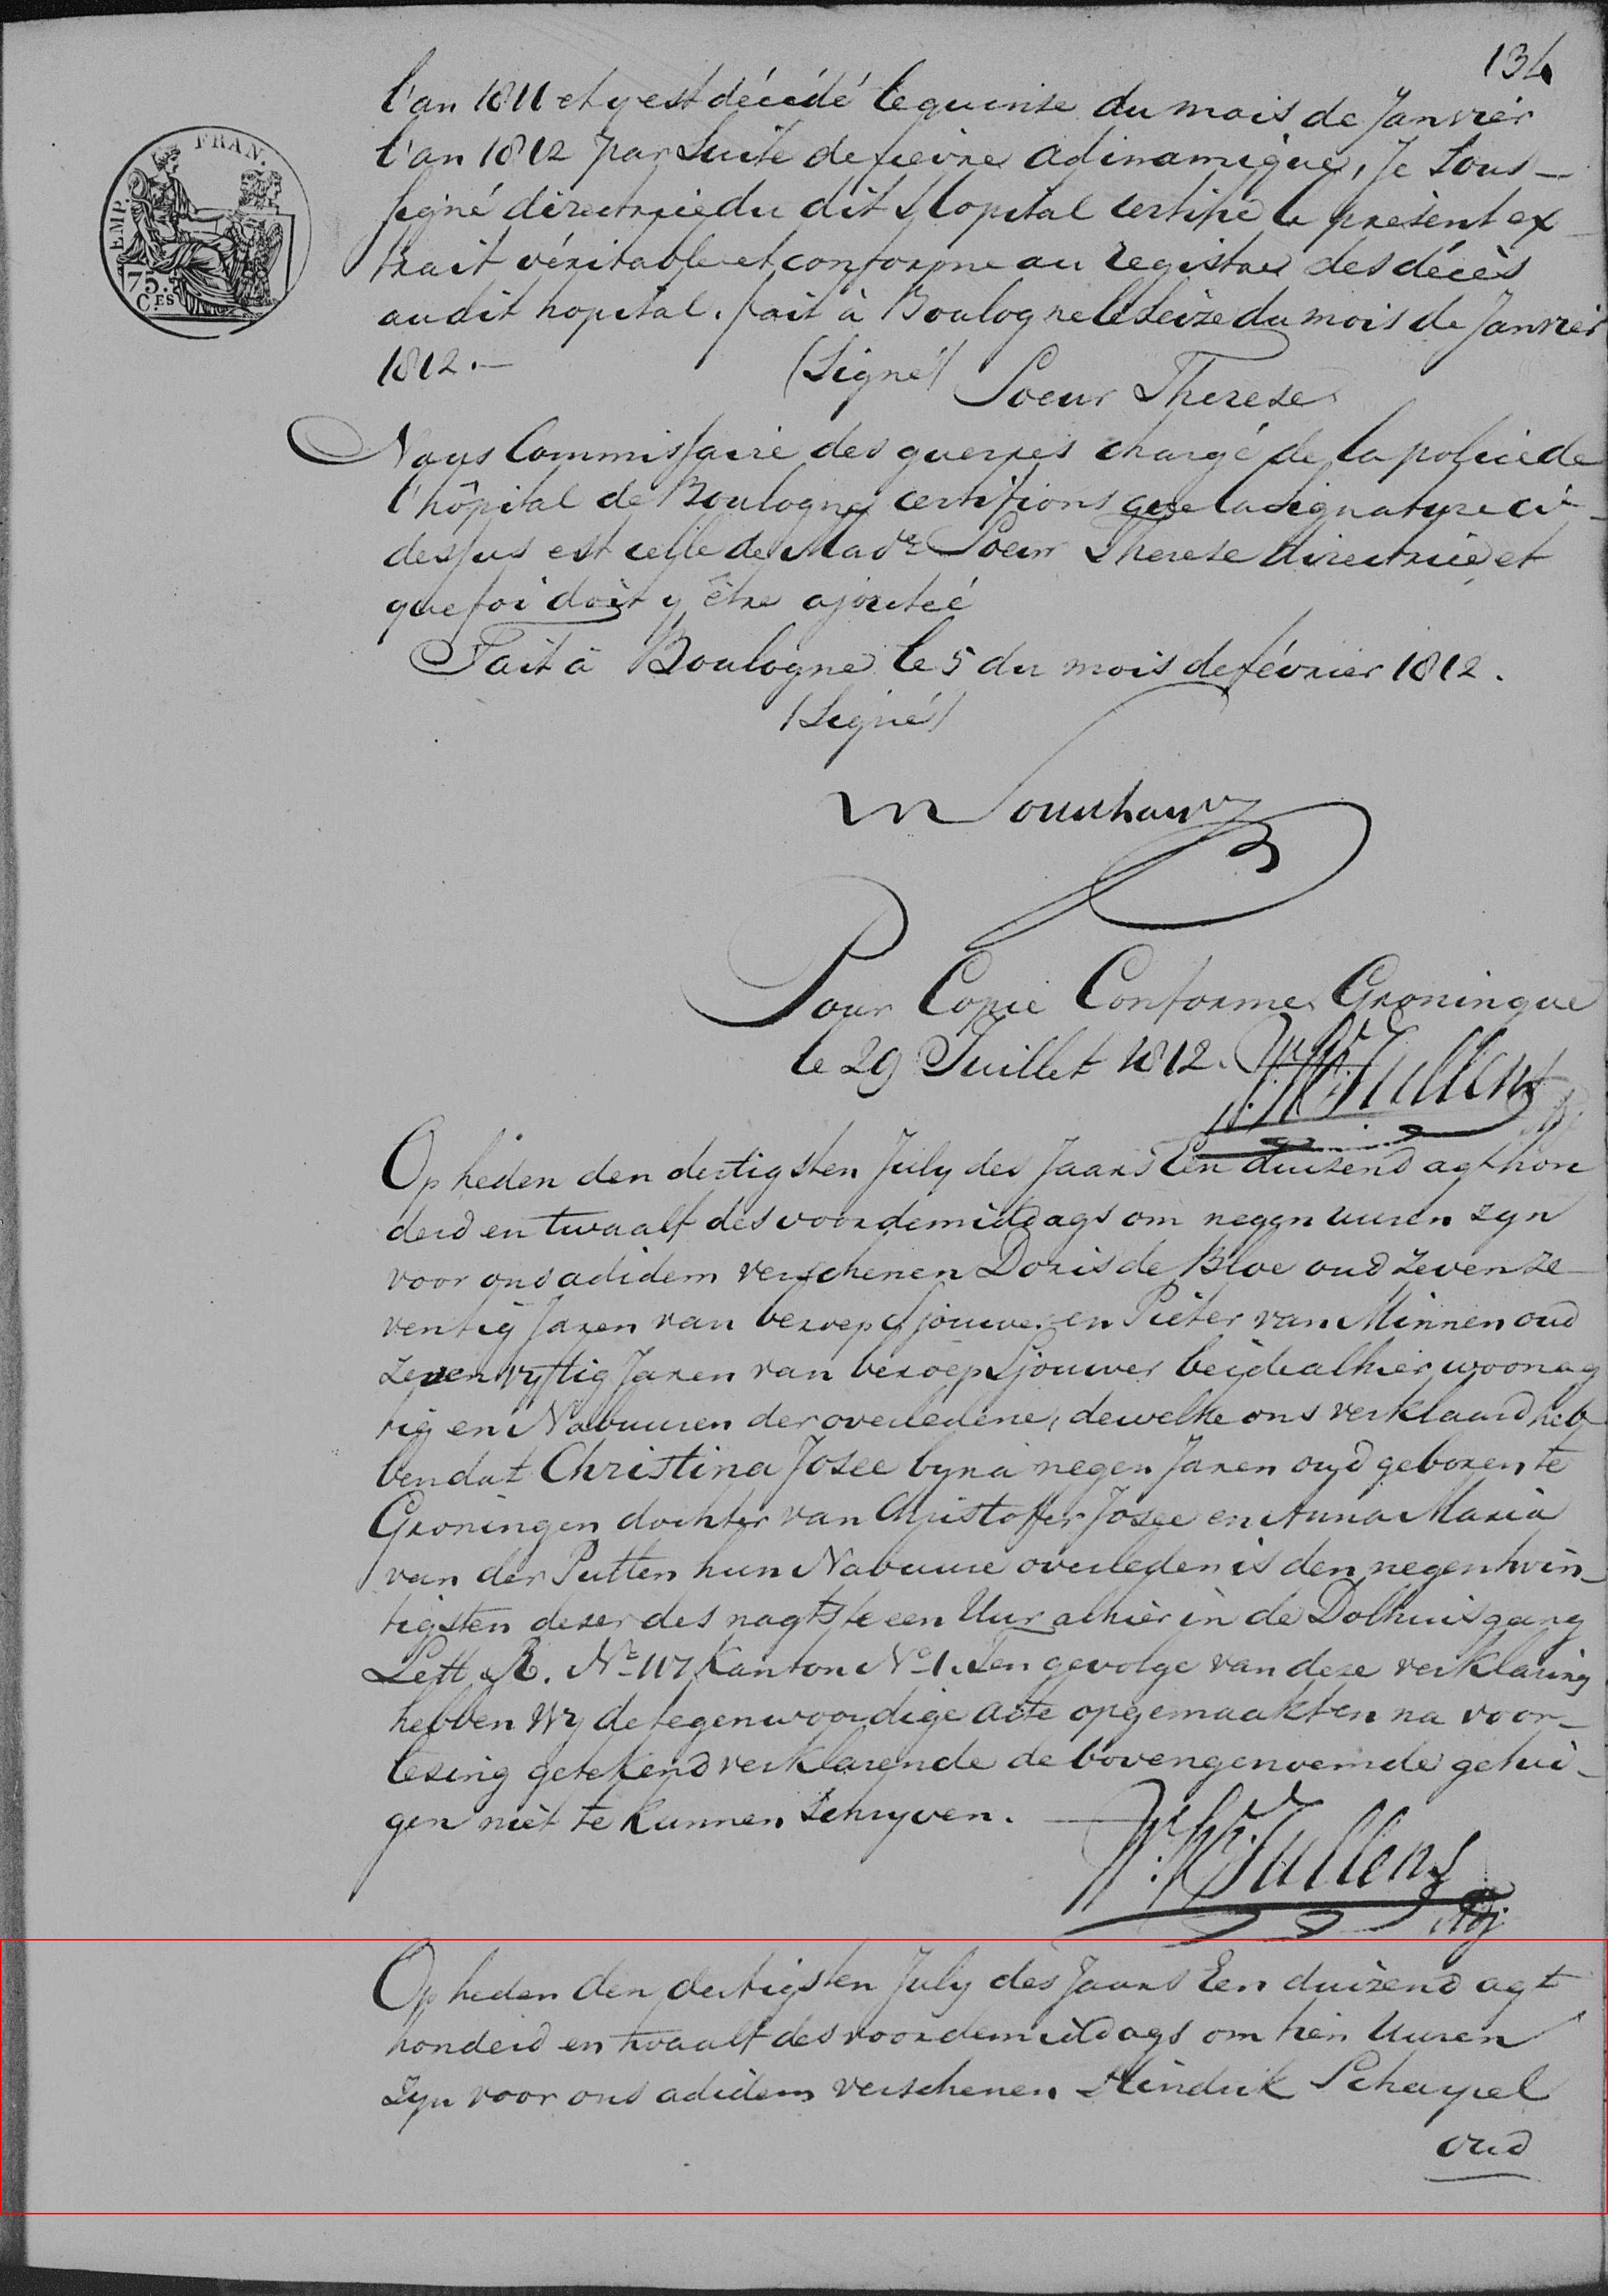 134
l'an 1811 et y est décédé le quinse du mois de Janvier
l'an 1812 par Suite de fievre adinamique, Je Sous-
signé directrice du dit hopital certifie le présent ex
trait véritable et conforme au registre des décès
au dit hopital. fait à Boulogne le Seize du mois de Janvier
1812.—
(Signé)
Soeur Therese
FRAN.
EMP.
75.
C.ES
Nous Commissaire des guerres chargé de la police de
l'hôpital de Boulogne certifions que la signature ci-
dessus est celle de Made. Soeur Therese directrice et
que foi doit y être ajoutée
Fait à Boulogne le 5 du mois de février 1812.
(Signé)
Pour Copie Conforme Groningue
le 29 Juillet 1812. Wm. Hk. Tullens
Op heden den dertigsten July des Jaars Een duizend agt hon
derd en twaalf des voordemiddags om negen uuren zyn
voor ons adidem verschenen Doris de Bloe oud zeven ze-
ventig Jaren van beroep Sjouwer en Pieter van Minnen oud
zeven vyftig Jaren van beroep Sjouwer beide alhier woonag
tig en Nabuuren der overledene, dewelke ons verklaard heb
ben dat Christina Josee byna negen Jaren oud geboren te
Groningen dochter van Christoffer Josee en Anna Maria
van der Putten hun Nabuure overleden is den negentwin-
tigsten dezer des nagts te een Uur alhier in de Dolhuisgang
Lett R. No 117 Kanton No 1. Ten gevolge van deze verklaring
hebben Wy de tegenwoordige acte opgemaakt en na voor-
lezing getekend verklarende de bovengenoemde getui-
gen niet te kunnen Schryven.
Wm. Hk. Tullens
Adj
Op heden den dertigsten July des Jaars Een duizend agt
honderd en twaalf des voordemiddags om tien Uuren
zyn voor ons adidem verschenen Hindrik Schaypel
oud